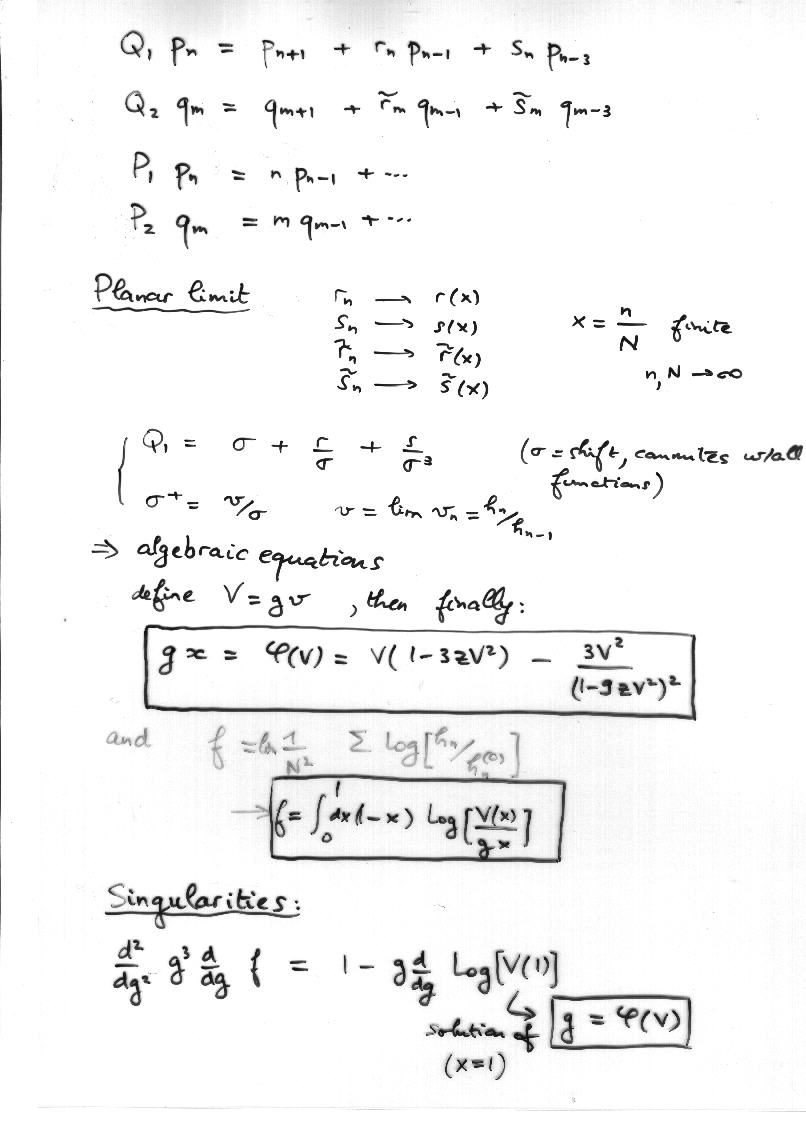 Q₁ pₙ = pₙ₊₁ + rₙ pₙ₋₁ + sₙ pₙ₋₃
Q₂ qₘ = qₘ₊₁ + r̃ₘ qₘ₋₁ + s̃ₘ qₘ₋₃
P₁ pₙ = n pₙ₋₁ + ...
P₂ qₘ = m qₘ₋₁ + ...
Planar limit
rₙ → r(x)
sₙ → s(x) x = n/N finite
r̃ₙ → r̃(x)
s̃ₙ → s̃(x) n, N → ∞
{ Q₁ = σ + r/σ + s/σ³ (σ = shift, commutes w/all functions)
σ⁺ = v/σ v = lim vₙ = hₙ/hₙ₋₁
⇒ algebraic equations
define V = g v , then finally:
g x = φ(V) = V(1-3zV²) - 3V²/(1-9zV²)²
and f = lim 1/N² Σ Log[hₙ/hₙ⁽⁰⁾]
→ f = ∫₀¹ dx(1-x) Log[V(x)/gx]
Singularities:
d²/dg² g³ d/dg f = 1 - g d/dg Log[V(1)]
↳ solution of g = φ(V)
(x=1)